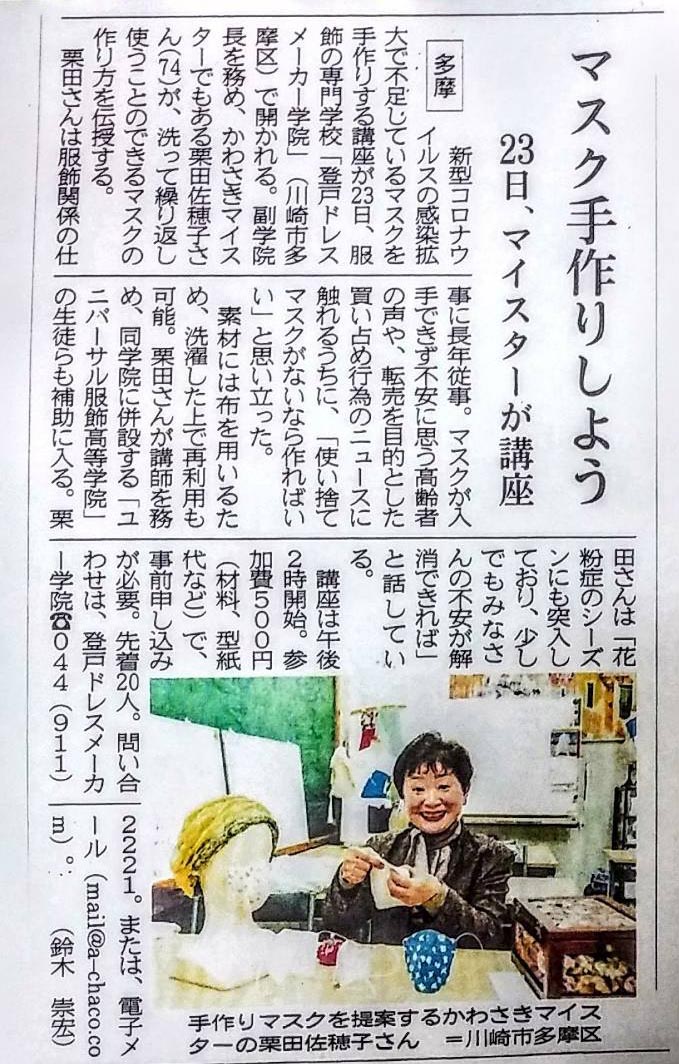 マスク手作りしよう
23日、マイスターが講座
多摩
新型コロナウ
イルスの感染拡
大で不足しているマスクを
手作りする講座が23日、服
飾の専門学校「登戸ドレス
メーカー学院」（川崎市多
摩区）で開かれる。副学院
長を務め、かわさきマイス
ターでもある栗田佐穂子さ
ん(74)が、洗って繰り返し
使うことのできるマスクの
作り方を伝授する。
栗田さんは服飾関係の仕
事に長年従事。マスクが入
手できず不安に思う高齢者
の声や、転売を目的とした
買い占め行為のニュースに
触れるうちに、「使い捨て
マスクがないなら作ればい
い」と思い立った。
素材には布を用いるた
め、洗濯した上で再利用も
可能。栗田さんが講師を務
め、同学院に併設する「ユ
ニバーサル服飾高等学院」
の生徒らも補助に入る。栗
田さんは「花
粉症のシーズ
ンにも突入し
ており、少し
でもみなさ
んの不安が解
消できれば」
と話してい
る。
講座は午後
2時開始。参
加費500円
（材料、型紙
代など）で、
事前申し込み
が必要。先着20人。問い合
わせは、登戸ドレスメーカ
ー学院☎044（911）
2221。または、電子メ
ール（mail@a-chaco.co
m）。
（鈴木 崇宏）
手作りマスクを提案するかわさきマイス
ターの栗田佐穂子さん ＝川崎市多摩区